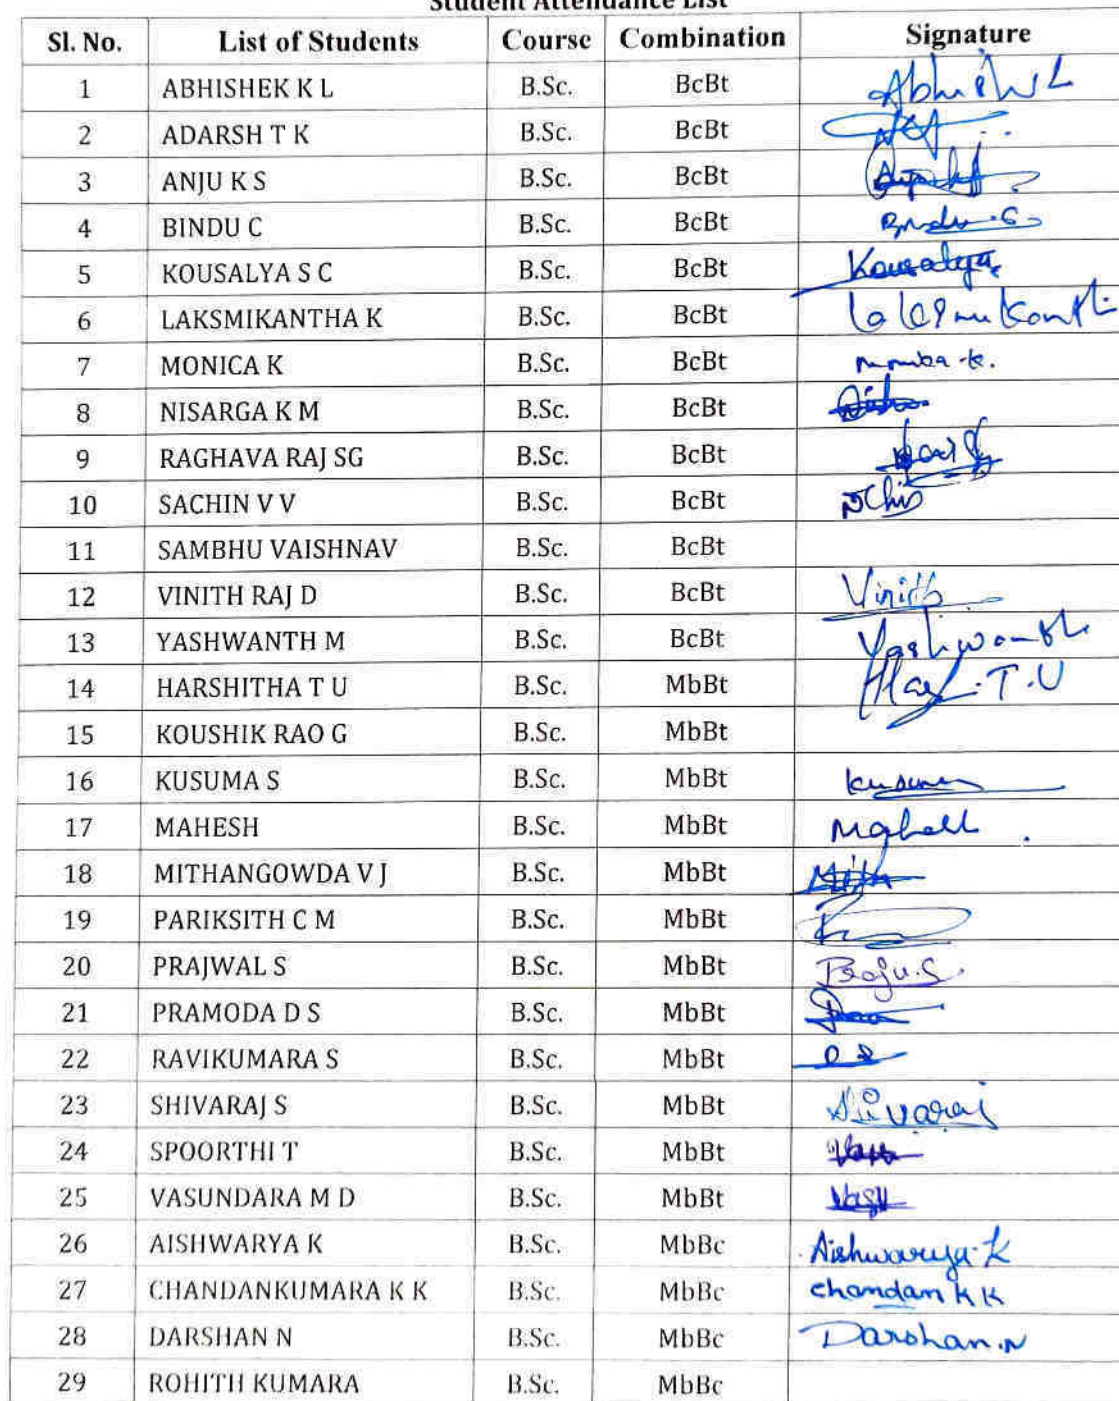 Student Attendance List
Sl. No. List of Students Course Combination Signature
1 ABHISHEK K L B.Sc. BcBt
2 ADARSH T K B.Sc. BcBt
3 ANJU K S B.Sc. BcBt
4 BINDU C B.Sc. BcBt
5 KOUSALYA S C B.Sc. BcBt Kousalya
6 LAKSMIKANTHA K B.Sc. BcBt
7 MONICA K B.Sc. BcBt
8 NISARGA K M B.Sc. BcBt
9 RAGHAVA RAJ SG B.Sc. BcBt
10 SACHIN V V B.Sc. BcBt
11 SAMBHU VAISHNAV B.Sc. BcBt
12 VINITH RAJ D B.Sc. BcBt Vinith
13 YASHWANTH M B.Sc. BcBt Yashwanth
14 HARSHITHA T U B.Sc. MbBt
15 KOUSHIK RAO G B.Sc. MbBt
16 KUSUMA S B.Sc. MbBt
17 MAHESH B.Sc. MbBt
18 MITHANGOWDA V J B.Sc. MbBt
19 PARIKSITH C M B.Sc. MbBt
20 PRAJWAL S B.Sc. MbBt
21 PRAMODA D S B.Sc. MbBt
22 RAVIKUMARA S B.Sc. MbBt
23 SHIVARAJ S B.Sc. MbBt Shivaraj
24 SPOORTHI T B.Sc. MbBt
25 VASUNDARA M D B.Sc. MbBt
26 AISHWARYA K B.Sc. MbBc Aishwarya.K
27 CHANDANKUMARA K K B.Sc. MbBc chandan K K
28 DARSHAN N B.Sc. MbBc Darshan.N
29 ROHITH KUMARA B.Sc. MbBc